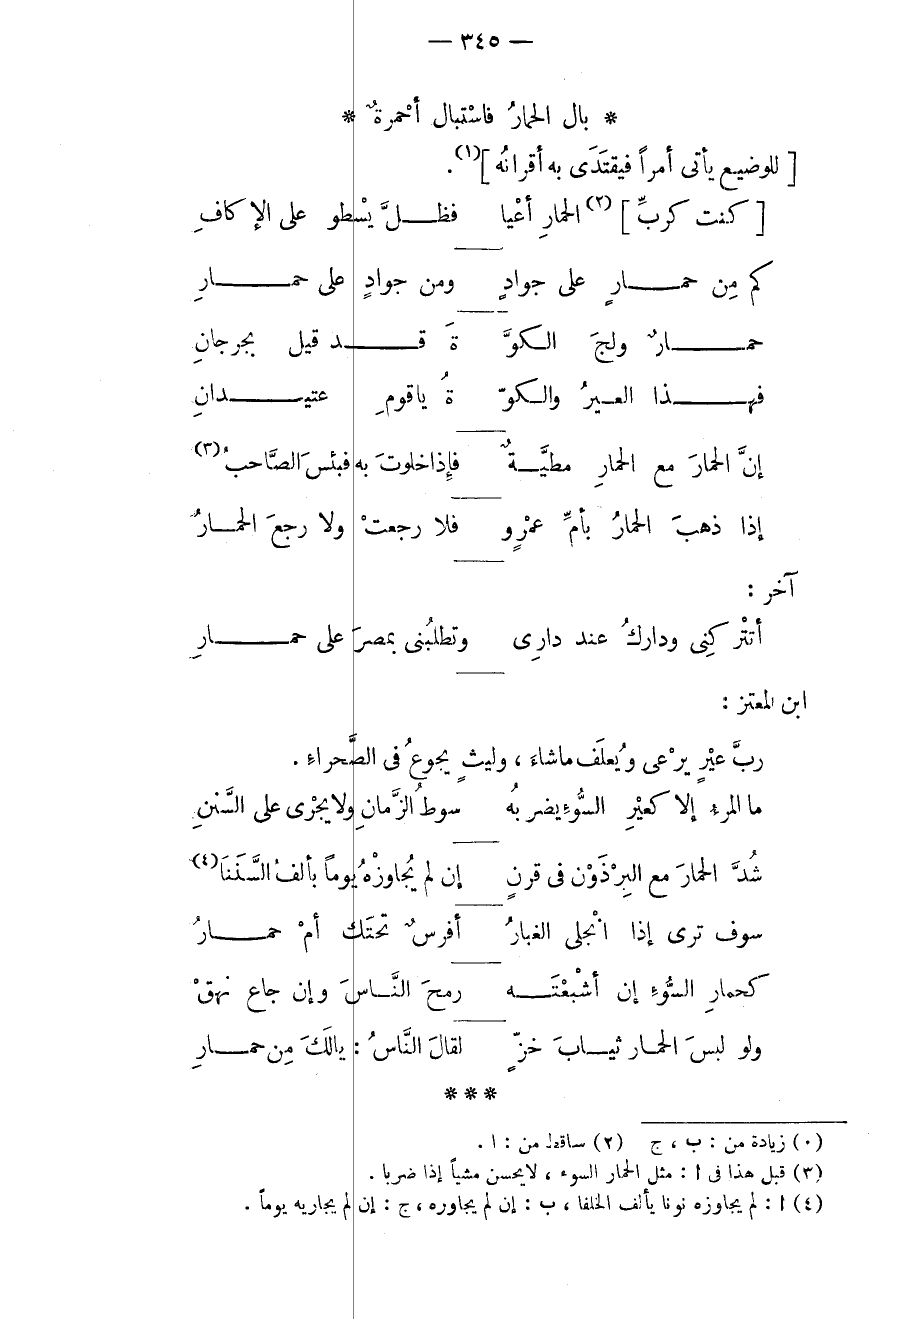 — ٣٤٥ —
* بال الحمارُ فاسْتبال أحْمرةٌ *
[ للوضيع يأتى أمراً فيقتَدَى به أقرانُه ](١).
[ كنت كربِّ ](٢) الحمارِ أعْيا فظــلَّ يسْطو على الإكافِ
كم مِن حمــارٍ على جوادٍ ومن جوادٍ على حمــارِ
حمــارٌ ولجَ الكوَّ ةَ قــد قيل بجرجانِ
فهــذا العيرُ والكوّ ةُ ياقومِ عتيــدانِ
إنَّ الحمارَ مع الحمارِ مطيَّــةٌ فإذا خلوتَ به فبئس الصَّاحبُ(٣)
إذا ذهبَ الحمارُ بأمِّ عمْرٍو فلا رجعتْ ولا رجعَ الحمــارُ
آخر :
أتتْركنِى وداركُ عند دارِى وتطلبُنى بمصرَ على حمــارِ
ابن المعتز :
ربَّ عيْرٍ يرْعى ويُعلَف ماشاء ، وليثٍ يجوعُ فى الصَّحراءِ .
ما المرء إلا كعيْرِ السُّوءِ يضربهُ سوطُ الزَّمانِ ولا يجْرى على السَّننِ
شُدَّ الحمارَ مع البِرْذَوْن فى قرنٍ إن لم يُجاوزْهُ يوماً بألفْ السَّنَنَا(٤)
سوف ترى إذا انْجلى الغبارُ أفرسٌ تحتَك أمْ حمــارُ
كحمارِ السُّوءِ إن أشبْعْتَــه رمحَ النَّــاسَ وإن جاع نهقْ
ولو لبسَ الحمار ثيــابَ خزٍّ لقالَ النَّاسُ : يالَكَ مِن حمــارِ
* * *
(٠) زيادة من : ب ، ج (٢) ساقط من : ا .
(٣) قبل هذا فى ا : مثل الحمار السوء ، لايحسن مشياً إذا ضربا .
(٤) ا : لم يجاوزه نونا يألف الخلفا ، ب : إن لم يجاوره ، ج : إن لم يجاريه يوماً .